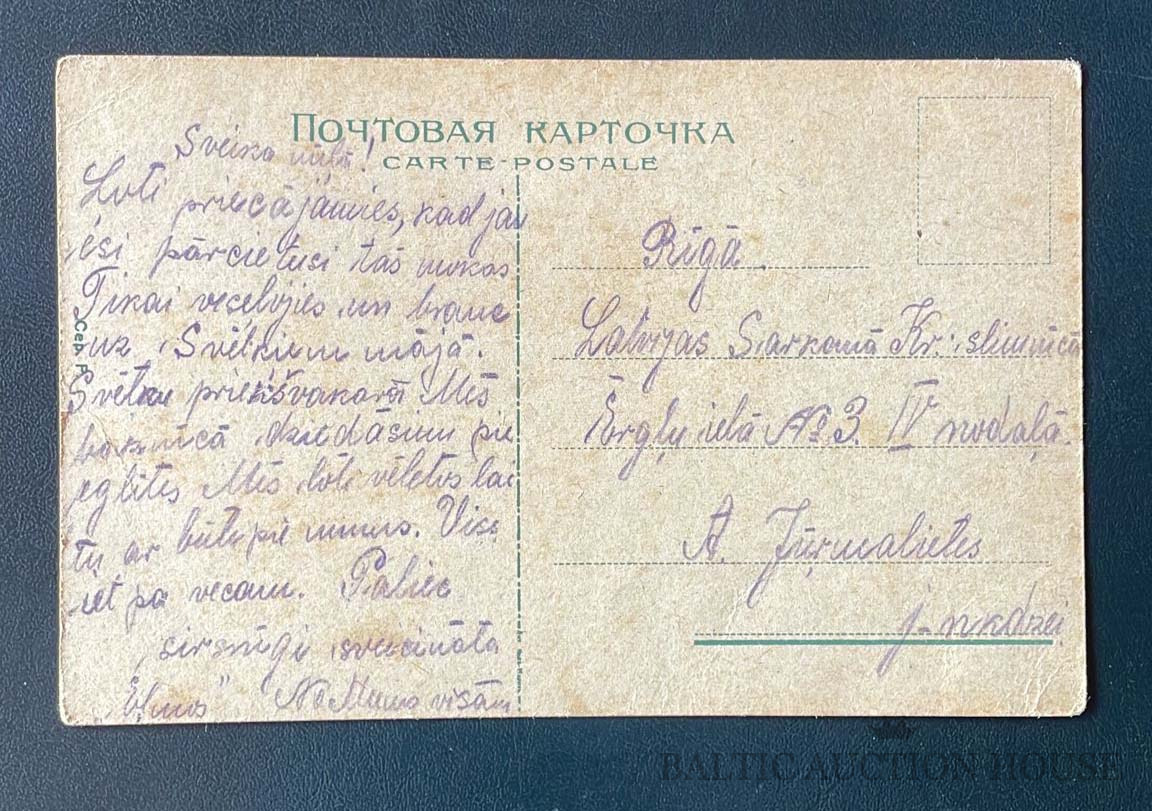 ПОЧТОВАЯ КАРТОЧКА
CARTE-POSTALE
Sveika mīļā!
Ļoti priecājamies, kad jau
esi pārcietusi tās mokas
Tikai veseļojies un brauc
uz Svētkiem mājā.
Svētku priekšvakarā Mēs
baznīcā dziedāsim pie
eglītes Mēs ļoti vēlētos lai
tu ar būtu pie mums. Viss
iet pa vecam. Paliec
sirsnīgi sveicināta
No Mums visām
Rīgā.
Latvijas Sarkanā Kr. slimnīcā
Ērgļu ielā № 3. IV nodaļā.
A. Jūrmalietes
j-nkdzei
BALTIC AUCTION HOUSE